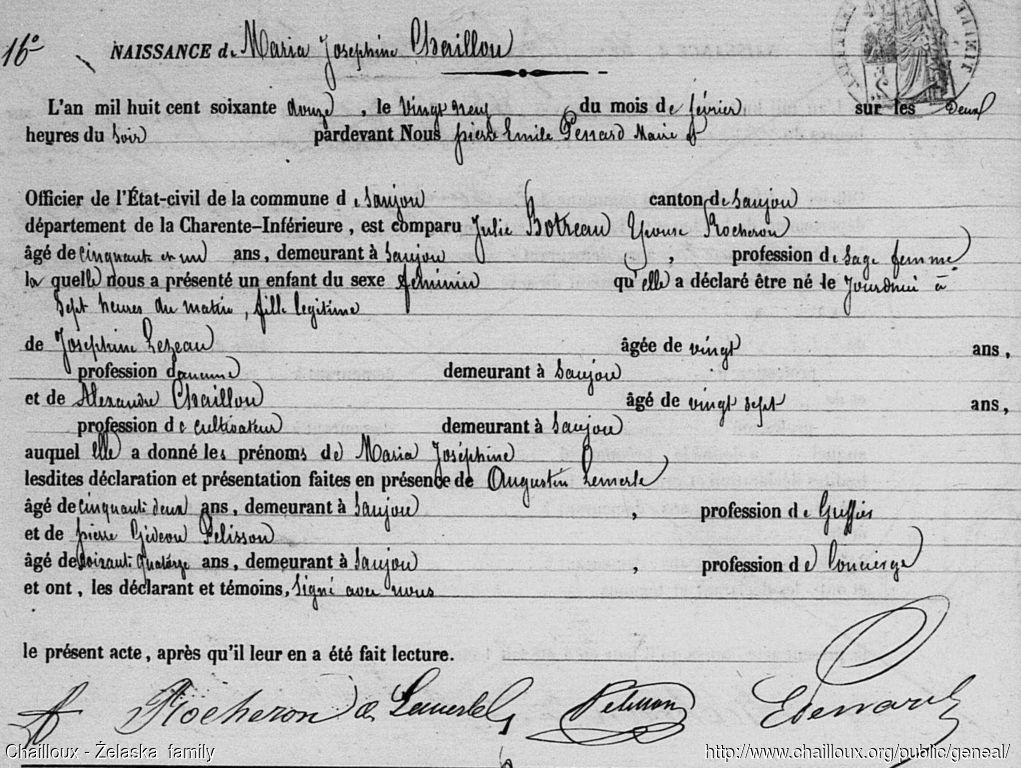 16°
NAISSANCE de Maria Josephine Chaillou
L'an mil huit cent soixante douze, le vingt neuf du mois de février sur les deux
heures du soir pardevant Nous pierre Emile Penard Maire et
Officier de l'État-civil de la commune de Saujon canton de Saujon
département de la Charente-Inférieure, est comparu Julie Botreau Epouse Rocheron
âgé de cinquante et un ans, demeurant à Saujon, profession de Sage femme
la quelle nous a présenté un enfant du sexe féminin qu'elle a déclaré être né le Jourdhui à
Sept heures du matin, fille legitime
de Josephine Lezeau âgée de vingt ans,
profession d'aucune demeurant à Saujon
et de Alexandre Chaillou âgé de vingt sept ans,
profession de cultivateur demeurant à Saujon
auquel elle a donné les prénoms de Maria Joséphine
lesdites déclaration et présentation faites en présence de Augustin Lemerle
âgé de cinquante deux ans, demeurant à Saujon, profession de Greffier
et de pierre Gédeon Pelisson
âgé de soixante quatorze ans, demeurant à Saujon, profession de Concierge
et ont, les déclarant et témoins, Signé avec nous
le présent acte, après qu'il leur en a été fait lecture.
Rocheron a Lemerle Pelisson E Penard
Chailloux - Żelaska family http://www.chailloux.org/public/geneal/